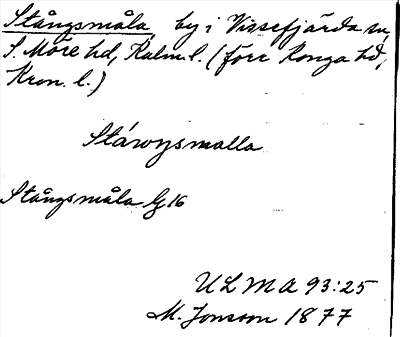 Stångsmåla, by i Vissefjärda sn,
S. Möre hd, Kalm. l. (förr Konga hd,
Kron. l.)
Stångsmalla
Stångsmåla G 16
ULMA 93:25
M. Jonsson 1877